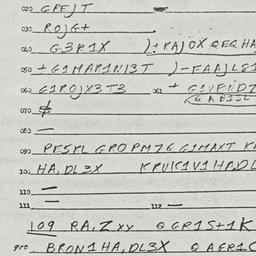 020 GPEJT —
030 ROJG+
040 G3R1X ):RAJOX QEQ HA
050 +G1MAR1N13T )-FAAJL81
060 G1ROJX3T3 061 + G1VFNDZ
070
080 —
090 PESKL GRO PM76 G1MAXT
100 HA, DL3X KRUK1V1 HA,DL
110 —
111 — 112 —
109 RA,Z XX Q GR1S+1K
BRON1 HA,DL3X Q AER1C